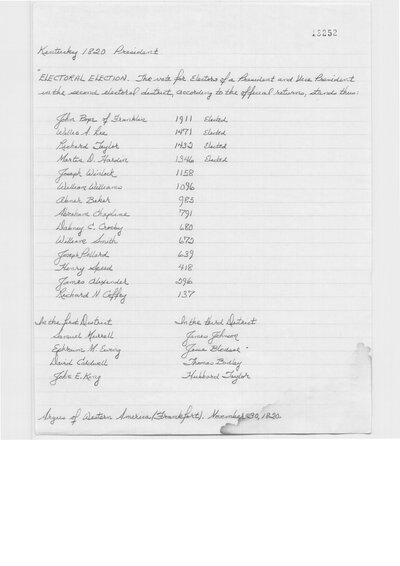 13252
Kentucky 1820 President
"ELECTORAL ELECTION. The vote for Electors of a President and Vice President
in the second electoral district, according to the official returns, stands thus:
John Pope of Franklin 1911 Elected
Willis A. Lee 1471 Elected
Richard Taylor 1432 Elected
Martin D. Hardin 1346 Elected
Joseph Winlock 1158
William Williams 1096
Abner Baker 985
Abraham Chapline 791
Dabney C. Cosby 680
William Smith 672
Joseph Pollard 639
Henry Speed 418
James Alexander 296
Richard H Coffey 137
In the first District In the third District
Samuel Murrell James Johnson
Ephraim M. Ewing Jesse Bledsoe "
David Caldwell Thomas Bodley
John E. King Hubbard Taylor
Argus of Western America (Frankfort). November 30, 1820.